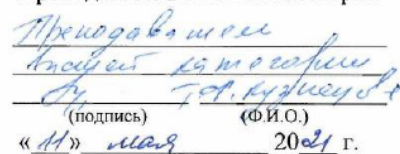 Преподаватель
высшей категории
Т.Ф. Кузнецова
(подпись) (Ф.И.О.)
«11» мая 2021 г.